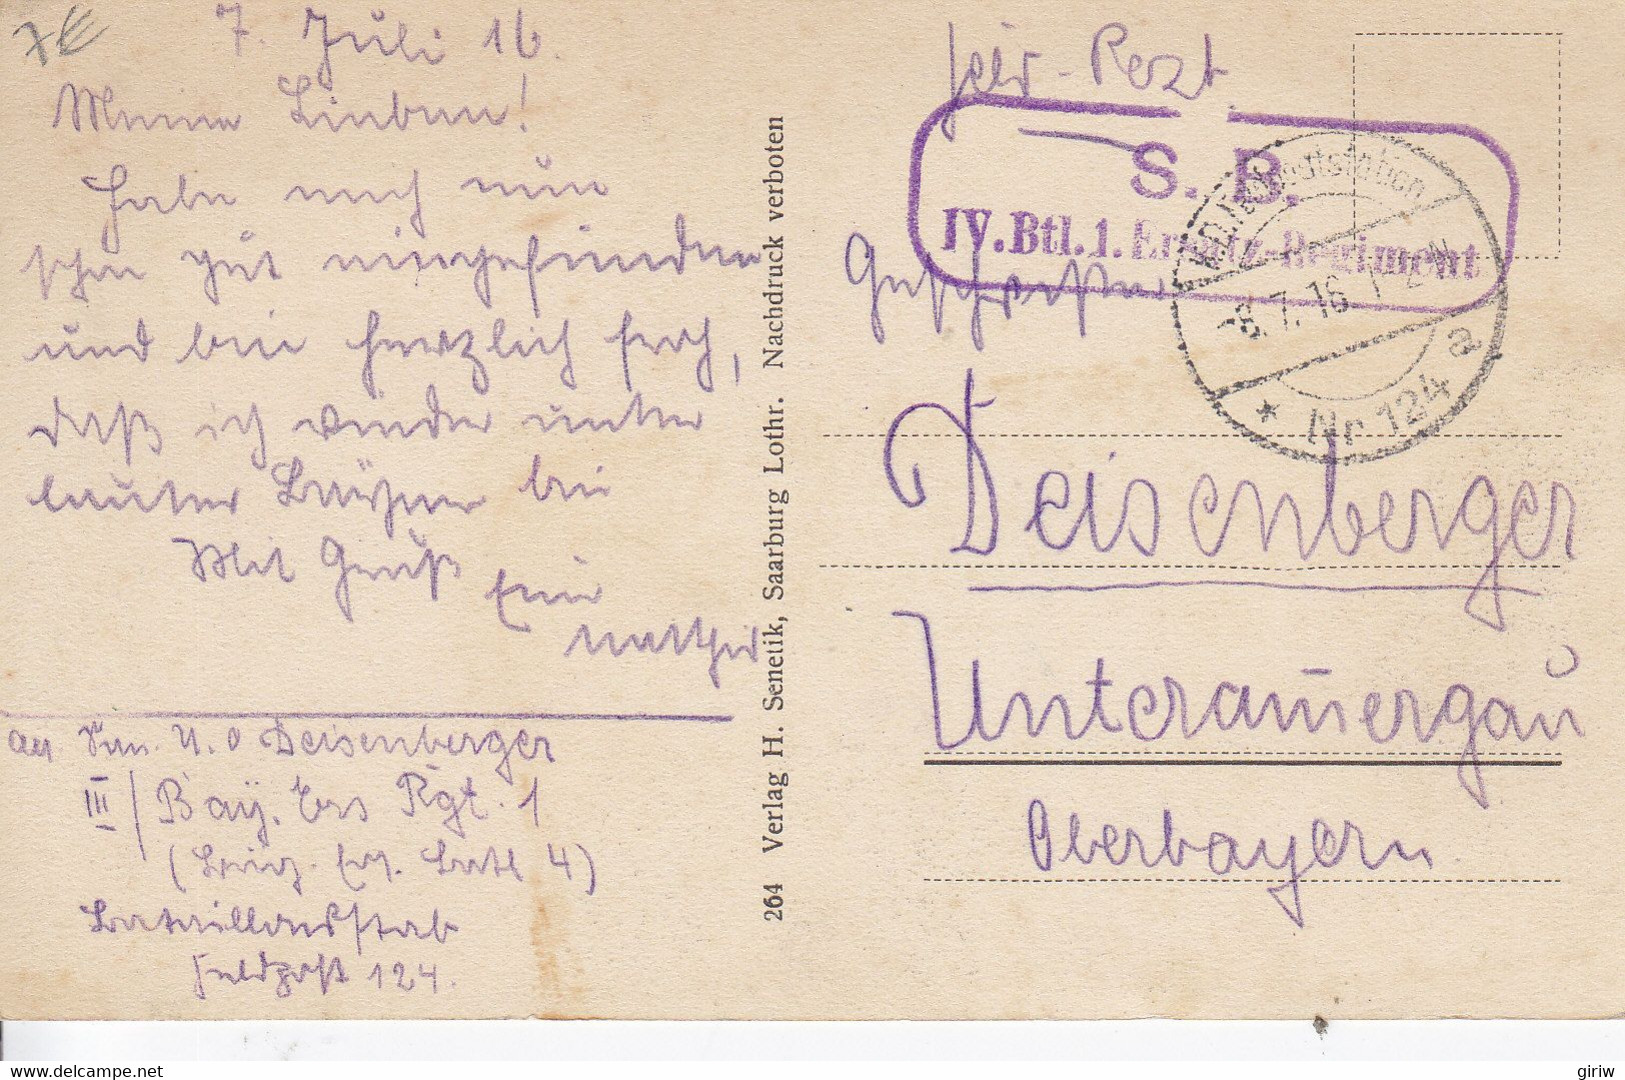 7 €
7. Juli 16.
Meine Lieben!
Habe mich nun
schon gut eingefunden
und bin herzlich froh,
daß ich wieder unter
lauter Bayern bin
Mit Gruß Euer
Mathias
an U.O Deisenberger
III / Bay. Ers Rgt. 1
(Brig. Ers. Batl 4)
Bataillonsstab
Feldpost 124.
264 Verlag H. Senetik, Saarburg Lothr. Nachdruck verboten
Feld-Post
S. B.
IV. Btl. 1. Ersatz-Regiment
8.7.16
a
* Nr 124
Geschwister
Deisenberger
Unteram̄ergau
Oberbayern
giriw